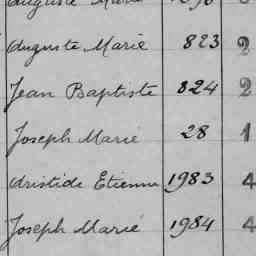 Auguste Marie 823 2
Jean Baptiste 824 2
Joseph Marie 28 1
Aristide Etienne 1983 4
Joseph Marie 1984 4